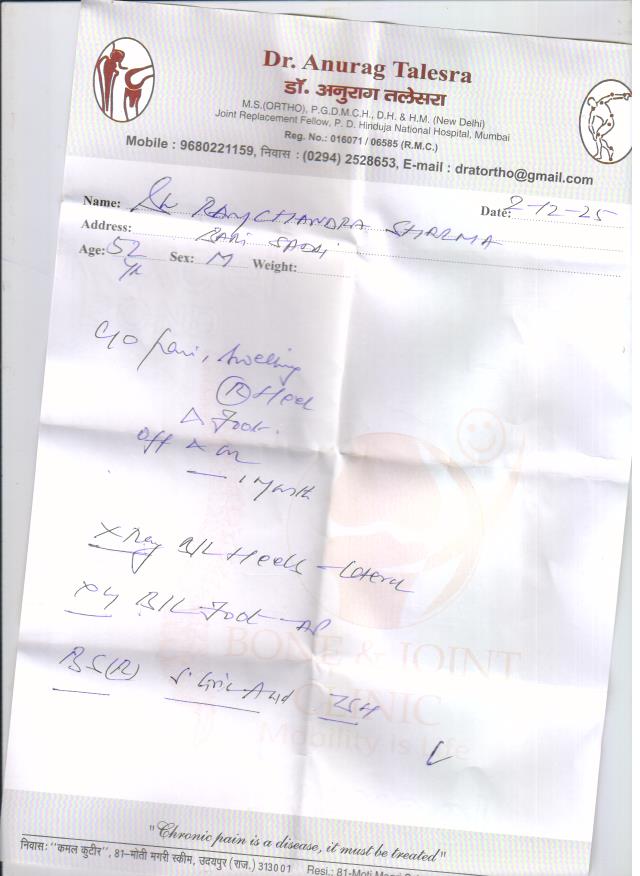 Dr. Anurag Talesra
डॉ. अनुराग तलेसरा
M.S.(ORTHO), P.G.D.M.C.H., D.H. & H.M. (New Delhi)
Joint Replacement Fellow, P. D. Hinduja National Hospital, Mumbai
Reg. No.: 016071 / 06585 (R.M.C.)
Mobile : 9680221159, निवास : (0294) 2528653, E-mail : dratortho@gmail.com
Name: RAMCHANDRA SHARMA Date: 2-12-25
Address: BARI SADRI
Age: 52 Yr Sex: M Weight:
C/o Pain, Swelling
(R) Heel
Foot.
Off & on
1 Month
X-Ray B/L Heels - Lateral
B/L Foot - AP
BONE & JOINT
CLINIC
Mobility is Life
BS(R) S. Uric Acid TSH
"Chronic pain is a disease, it must be treated"
निवास: "कमल कुटीर", 81-मोती मगरी स्कीम, उदयपुर (राज.) 313001 Resi.: 81-Moti